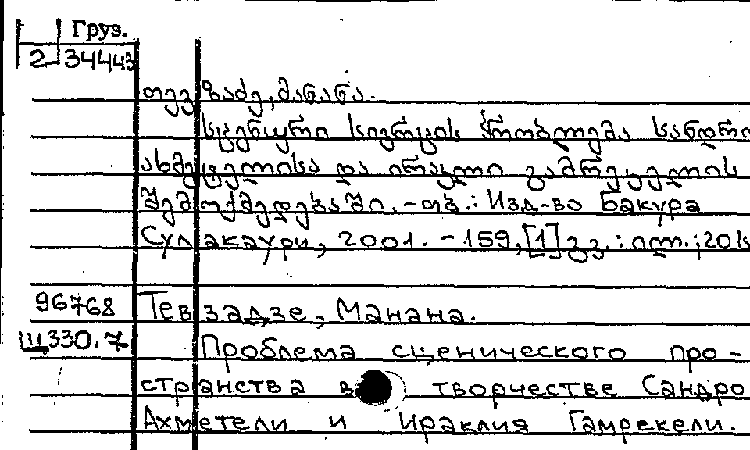 Груз.
2 34443
თევზაძე, მანანა.
სცენიური სივრცის პრობლემა სანდრო
ახმეტელისა და ირაკლი გამრეკელის
შემოქმედებაში. - თბ.: Изд-во Бакура
Сулакаури, 2001. - 159, [1] გვ.: ილ.; 20 ს
96768 Тевзадзе, Манана.
Щ330.7
Проблема сценического про-
странства в творчестве Сандро
Ахметели и Ираклия Гамрекели.